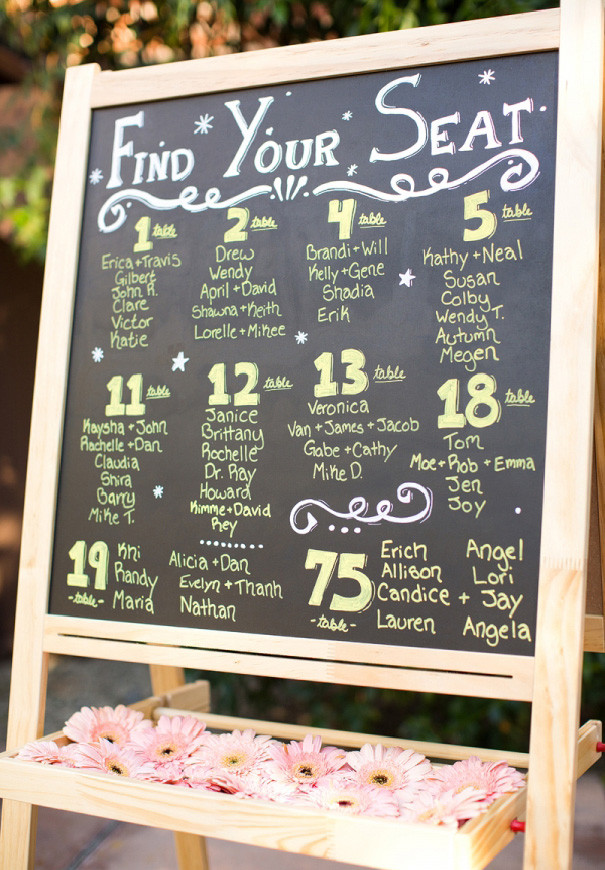 FIND YOUR SEAT
1 table
Erica+Travis
Gilbert
John R.
Clare
Victor
Katie
2 table
Drew
Wendy
April+David
Shawna+Keith
Lorelle+Mikee
4 table
Brandi+Will
Kelly+Gene
Shadia
Erik
5 table
Kathy+Neal
Susan
Colby
Wendy T.
Autumn
Megen
11 table
Kaysha+John
Rachelle+Dan
Claudia
Shira
Barry
Mike T.
12 table
Janice
Brittany
Rochelle
Dr. Ray
Howard
Kimme+David
Rey
13 table
Veronica
Van+James+Jacob
Gabe+Cathy
Mike D.
18 table
Tom
Moe+Rob+Emma
Jen
Joy
19
-table-
Khi
Randy
Maria
Alicia+Dan
Evelyn+Thanh
Nathan
75
-table-
Erich Angel
Allison Lori
Candice + Jay
Lauren Angela